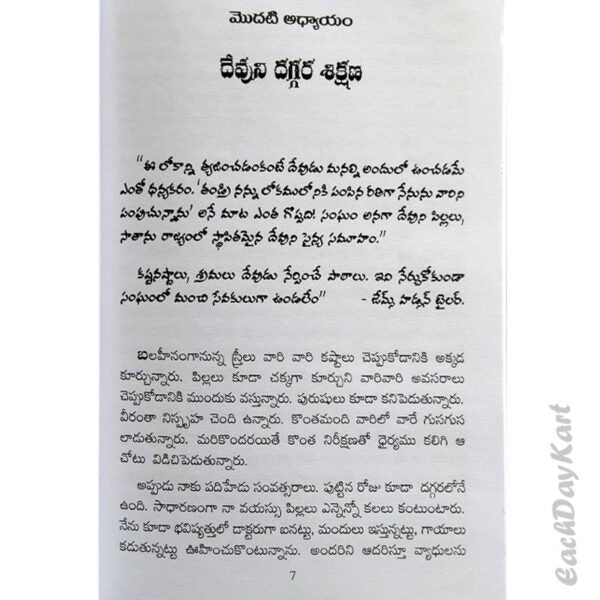 మొదటి అధ్యాయం
దేవుని దగ్గర శిక్షణ
"ఈ లోకాన్ని త్యజించడంకంటే దేవుడు మనల్ని అందులో ఉంచడమే
ఎంతో ధన్యకరం. 'తండ్రి నన్ను లోకములోనికి పంపిన రీతిగా నేనును వారిని
పంపుచున్నాను' అనే మాట ఎంత గొప్పది! సంఘం అనగా దేవుని పిల్లలు,
సాతాను రాజ్యంలో స్థాపితమైన దేవుని సైన్య సమూహం."
కష్టనష్టాలు, శ్రమలు దేవుడు నేర్పించే పాఠాలు. ఇవి నేర్చుకోకుండా
సంఘంలో మంచి సేవకులుగా ఉండలేం" - జేమ్స్ హడ్సన్ టైలర్.
బలహీనంగానున్న స్త్రీలు వారి వారి కష్టాలు చెప్పుకోడానికి అక్కడ
కూర్చున్నారు. పిల్లలు కూడా చక్కగా కూర్చుని వారివారి అవసరాలు
చెప్పుకోడానికి ముందుకు వస్తున్నారు. పురుషులు కూడా కనిపెడుతున్నారు.
వీరంతా నిస్పృహ చెంది ఉన్నారు. కొంతమంది వారిలో వారే గుసగుస
లాడుతున్నారు. మరికొందరయితే కొంత నిరీక్షణతో ధైర్యము కలిగి ఆ
చోటు విడిచిపెడుతున్నారు.
అప్పుడు నాకు పదిహేడు సంవత్సరాలు. పుట్టిన రోజు కూడా దగ్గరలోనే
ఉంది. సాధారణంగా నా వయస్సు పిల్లలు ఎన్నెన్నో కలలు కంటుంటారు.
నేను కూడా భవిష్యత్తులో డాక్టరుగా ఐనట్టు, మందులు ఇస్తున్నట్టు, గాయాలు
కడుతున్నట్టు ఊహించుకొంటున్నాను. అందరిని ఆదరిస్తూ వ్యాధులను
7
EachDayKart